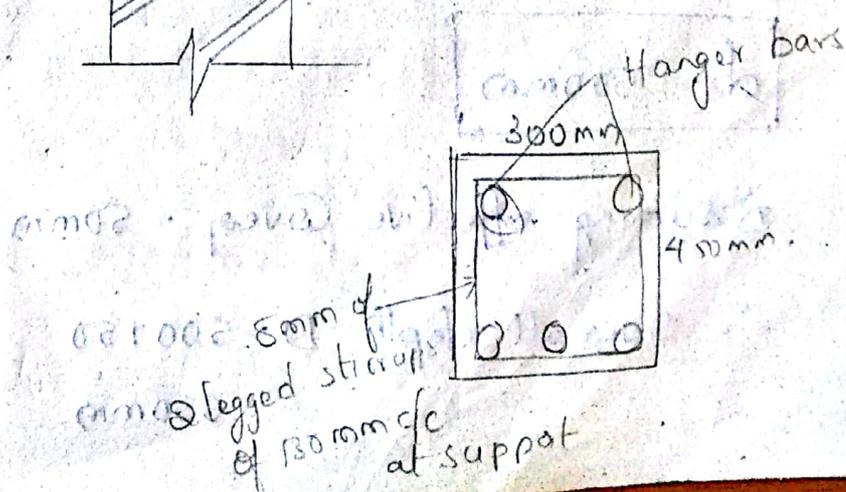 Hanger bars
300mm
450mm.
8mm ϕ
2 legged stirrup
of 130mm c/c
at suppot